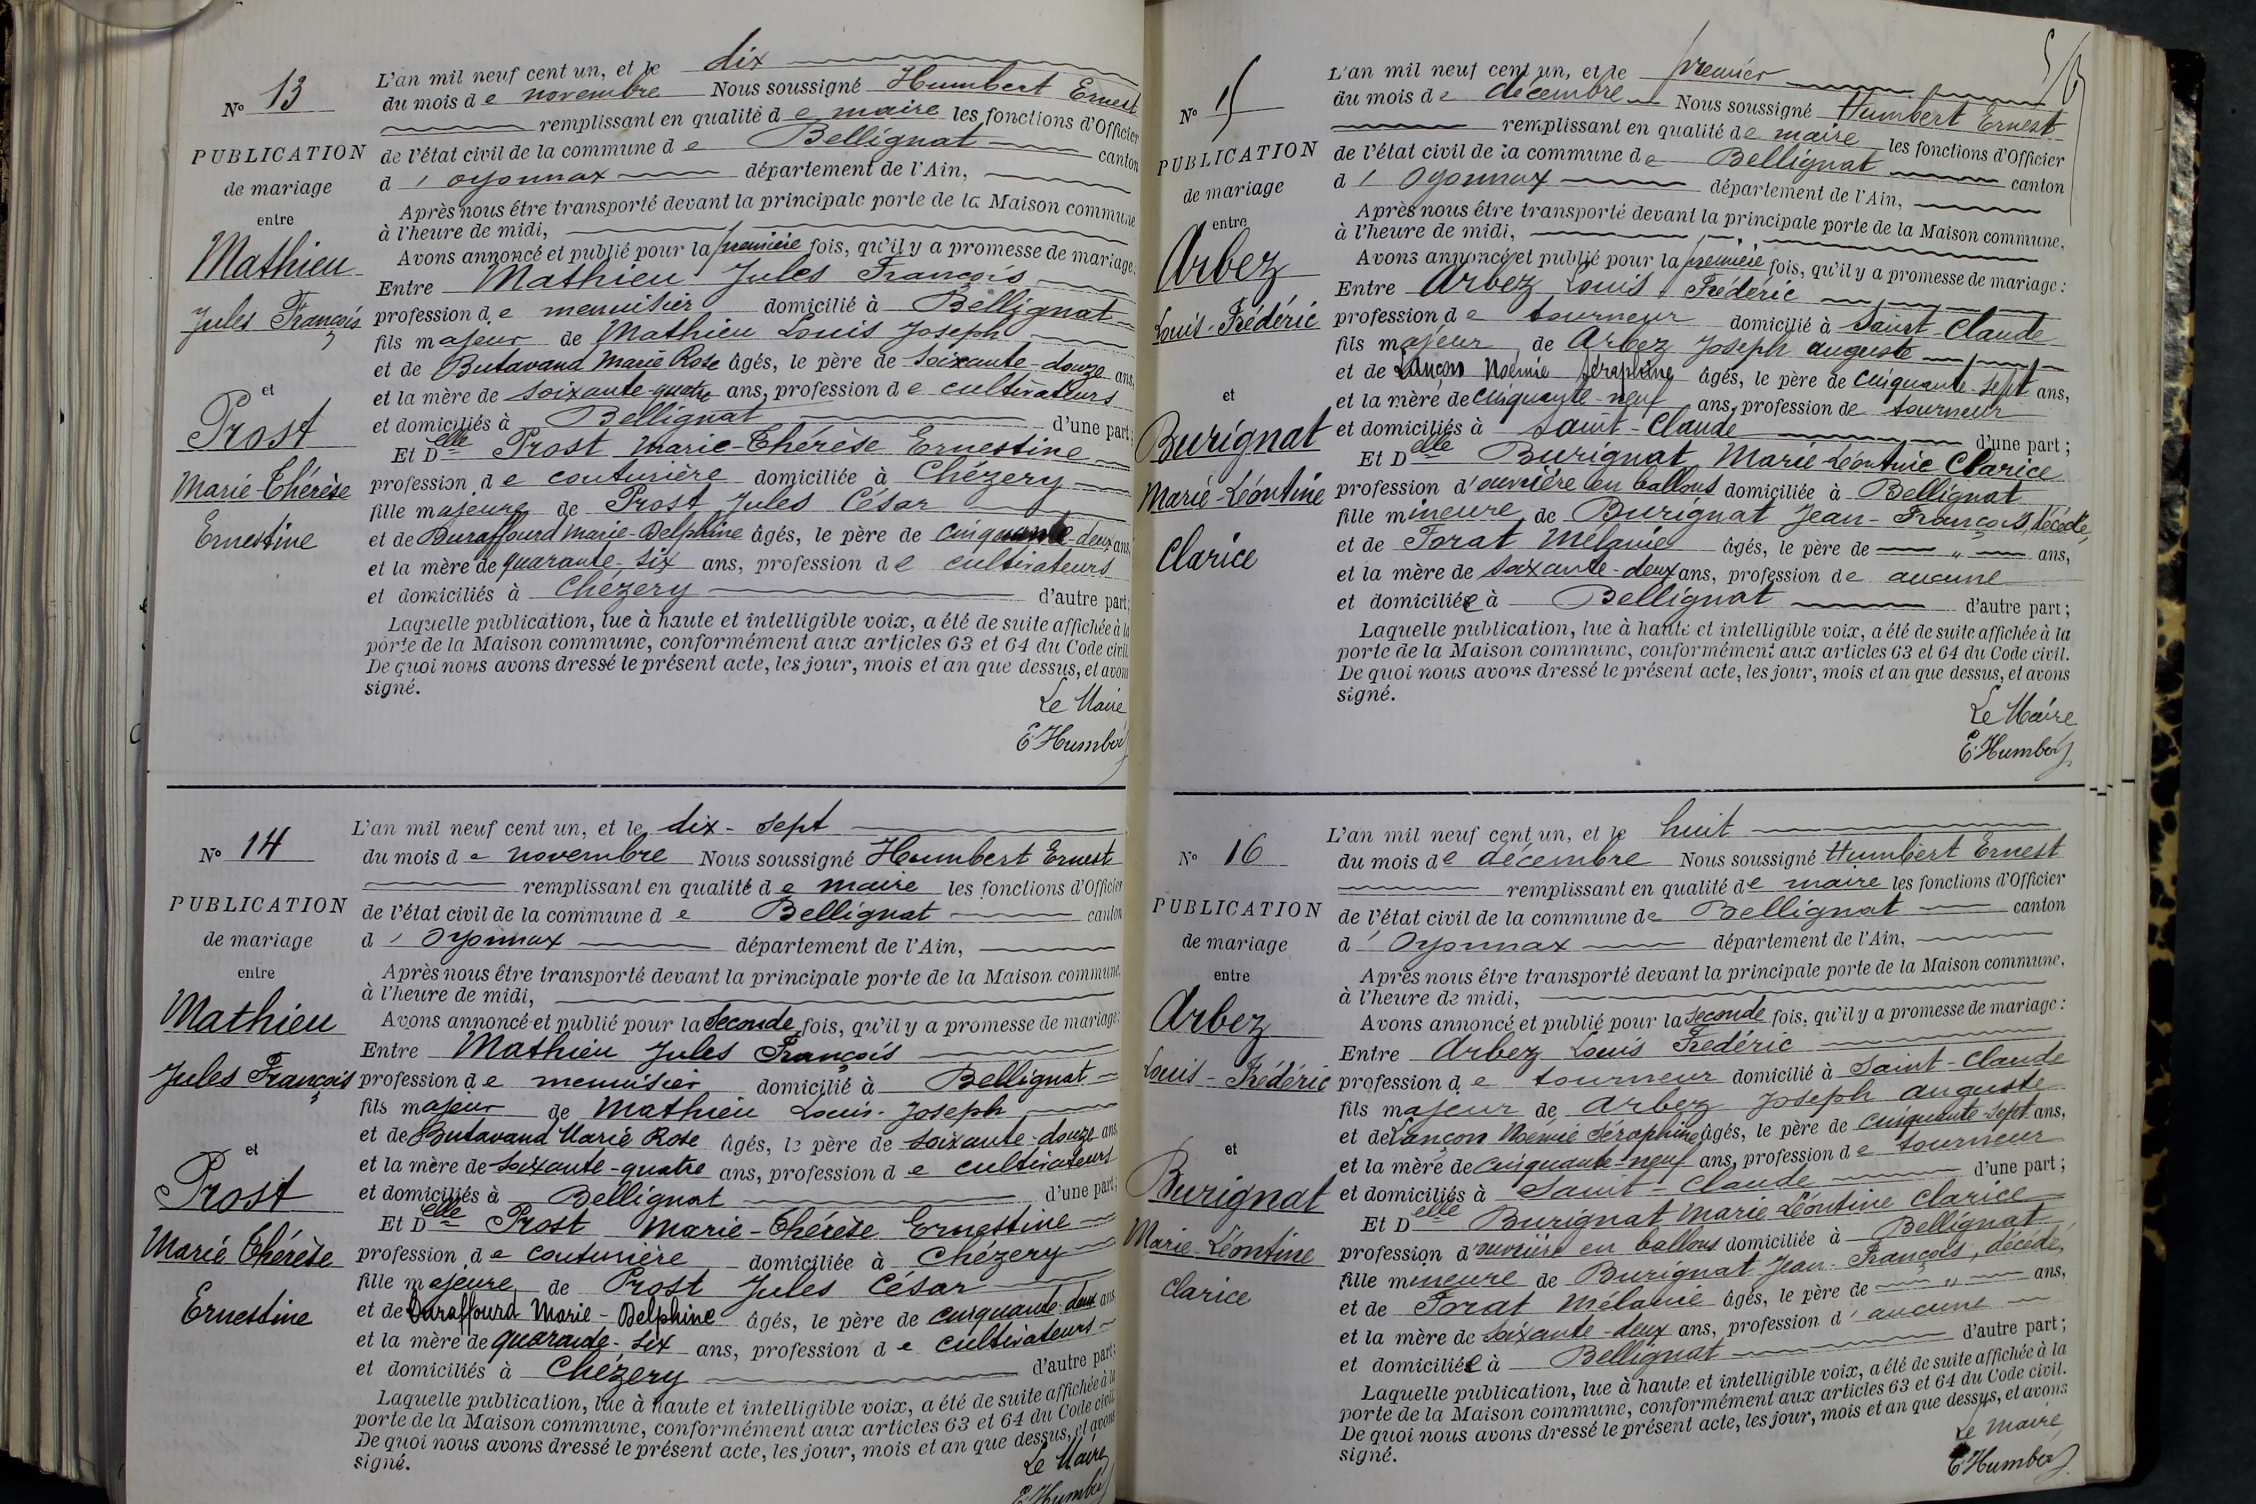 N° 13
PUBLICATION
de mariage
entre
Mathieu
Jules François
et
Prost
Marie Thérèse
Ernestine
L'an mil neuf cent un, et le dix
du mois de novembre Nous soussigné Humbert Ernest
remplissant en qualité de maire les fonctions d'Officier
de l'état civil de la commune de Bellignat canton
d'Oyonnax département de l'Ain,
Après nous être transporté devant la principale porte de la Maison commune
à l'heure de midi,
Avons annoncé et publié pour la première fois, qu'il y a promesse de mariage:
Entre Mathieu Jules François
profession de menuisier domicilié à Bellignat
fils majeur de Mathieu Louis Joseph
et de Butavand Marie Rose âgés, le père de soixante-douze ans,
et la mère de soixante-quatre ans, profession de cultivateurs
et domiciliés à Bellignat d'une part;
Et Delle Prost Marie-Thérèse Ernestine
profession de couturière domiciliée à Chézery
fille majeure de Prost Jules César
et de Duraffourd Marie-Delphine âgés, le père de cinquante-deux ans,
et la mère de quarante-six ans, profession de cultivateurs
et domiciliés à Chézery d'autre part;
Laquelle publication, lue à haute et intelligible voix, a été de suite affichée à la
porte de la Maison commune, conformément aux articles 63 et 64 du Code civil.
De quoi nous avons dressé le présent acte, les jour, mois et an que dessus, et avons
signé.
Le Maire
E. Humbert
N° 14
PUBLICATION
de mariage
entre
Mathieu
Jules François
et
Prost
Marie Thérèse
Ernestine
L'an mil neuf cent un, et le dix-sept
du mois de novembre Nous soussigné Humbert Ernest
remplissant en qualité de maire les fonctions d'Officier
de l'état civil de la commune de Bellignat canton
d'Oyonnax département de l'Ain,
Après nous être transporté devant la principale porte de la Maison commune,
à l'heure de midi,
Avons annoncé et publié pour la seconde fois, qu'il y a promesse de mariage:
Entre Mathieu Jules François
profession de menuisier domicilié à Bellignat
fils majeur de Mathieu Louis-Joseph
et de Butavand Marie Rose âgés, le père de soixante-douze ans
et la mère de soixante-quatre ans, profession de cultivateurs
et domiciliés à Bellignat d'une part;
Et Delle Prost Marie-Thérèse Ernestine
profession de couturière domiciliée à Chézery
fille majeure de Prost Jules César
et de Duraffourd Marie-Delphine âgés, le père de cinquante-deux ans
et la mère de quarante-six ans, profession de cultivateurs
et domiciliés à Chézery d'autre part;
Laquelle publication, lue à haute et intelligible voix, a été de suite affichée à la
porte de la Maison commune, conformément aux articles 63 et 64 du Code civil.
De quoi nous avons dressé le présent acte, les jour, mois et an que dessus, et avons
signé.
Le Maire
E. Humbert
N° 15
PUBLICATION
de mariage
entre
Arbez
Louis-Frédéric
et
Burignat
Marie-Léontine
Clarice
L'an mil neuf cent un, et le premier
du mois de décembre Nous soussigné Humbert Ernest
remplissant en qualité de maire les fonctions d'Officier
de l'état civil de la commune de Bellignat canton
d'Oyonnax département de l'Ain,
Après nous être transporté devant la principale porte de la Maison commune,
à l'heure de midi,
Avons annoncé et publié pour la première fois, qu'il y a promesse de mariage:
Entre Arbez Louis Frédéric
profession de tourneur domicilié à Saint-Claude
fils majeur de Arbez Joseph Auguste
et de Lançon Noémie Séraphine âgés, le père de cinquante-sept ans,
et la mère de cinquante-neuf ans, profession de tourneur
et domiciliés à Saint-Claude d'une part;
Et Delle Burignat Marie Léontine Clarice
profession d'ouvrière en ballons domiciliée à Bellignat
fille mineure de Burignat Jean-François, décédé,
et de Forat Mélanie âgés, le père de " ans,
et la mère de soixante-deux ans, profession de aucune
et domiciliée à Bellignat d'autre part;
Laquelle publication, lue à haute et intelligible voix, a été de suite affichée à la
porte de la Maison commune, conformément aux articles 63 et 64 du Code civil.
De quoi nous avons dressé le présent acte, les jour, mois et an que dessus, et avons
signé.
Le Maire
E. Humbert
N° 16
PUBLICATION
de mariage
entre
Arbez
Louis-Frédéric
et
Burignat
Marie-Léontine
Clarice
L'an mil neuf cent un, et le huit
du mois de décembre Nous soussigné Humbert Ernest
remplissant en qualité de maire les fonctions d'Officier
de l'état civil de la commune de Bellignat canton
d'Oyonnax département de l'Ain,
Après nous être transporté devant la principale porte de la Maison commune,
à l'heure de midi,
Avons annoncé et publié pour la seconde fois, qu'il y a promesse de mariage:
Entre Arbez Louis Frédéric
profession de tourneur domicilié à Saint-Claude
fils majeur de Arbez Joseph Auguste
et de Lançon Noémie Séraphine âgés, le père de cinquante-sept ans,
et la mère de cinquante-neuf ans, profession de tourneur
et domiciliés à Saint-Claude d'une part;
Et Delle Burignat Marie Léontine Clarice
profession d'ouvrière en ballons domiciliée à Bellignat
fille mineure de Burignat Jean-François, décédé,
et de Forat Mélanie âgés, le père de " ans,
et la mère de soixante-deux ans, profession d'aucune
et domiciliée à Bellignat d'autre part;
Laquelle publication, lue à haute et intelligible voix, a été de suite affichée à la
porte de la Maison commune, conformément aux articles 63 et 64 du Code civil.
De quoi nous avons dressé le présent acte, les jour, mois et an que dessus, et avons
signé.
Le Maire
E. Humbert